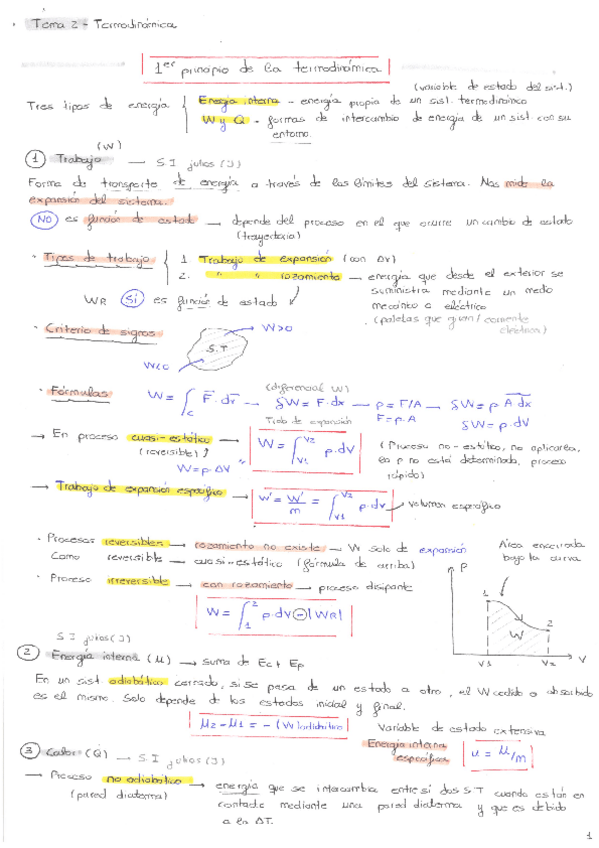 Tema 2 - Termodinámica
1er principio de la termodinámica
(variable de estado del sist.)
Tres tipos de energía
Energía interna - energía propia de un sist. termodinámico
W y Q - formas de intercambio de energía de un sist. con su
entorno.
(W)
1 Trabajo → S.I julios (J)
Forma de transporte de energía a través de los límites del sistema. Nos mide la
expansión del sistema.
NO es función de estado → depende del proceso en el que ocurre un cambio de estado
(trayectoria)
· Tipos de trabajo
1. Trabajo de expansión (con ΔV)
2. " " rozamiento → energía que desde el exterior se
suministra mediante un medio
mecánico o eléctrico
(paletas que giran / corriente
eléctrica)
WR SÍ es función de estado
· Criterio de signos
W>0
S.T
W<0
· Fórmulas W = ∫c F̄·dr̄ → (diferencial W) δW = F·dx → p = F/A → δW = p·A dx
F = p·A
δW = p·dV
Trab de expansión
→ En proceso cuasi-estático (reversible) → W = ∫V1V2 p·dV
W = p·ΔV
(Proceso no-estático, no aplicarla,
la p no está determinada, proceso
rápido)
→ Trabajo de expansión específico → w' = W'/m = ∫V1V2 p·dv → volumen específico
· Procesos reversibles → rozamiento no existe → W solo de expansión
Como reversible → cuasi-estático (fórmula de arriba)
· Proceso irreversible → con rozamiento → proceso disipante
W = ∫12 p·dV - |WR|
Área encerrada
bajo la curva
P
1
2
W
V1
V2
V
S.I julios (J)
2 Energía interna (μ) → suma de Ec + Ep
En un sist adiabático cerrado, si se pasa de un estado a otro, el W cedido o absorbido
es el mismo. Solo depende de los estados inicial y final.
μ2 - μ1 = - (W)adiabático
Variable de estado extensiva
Energía interna
específica
u = μ/m
3 Calor (Q) → S.I julios (J)
→ Proceso no adiabático
(pared diaterma)
→ energía que se intercambia entre sí dos S.T cuando están en
contacto mediante una pared diaterma y que es debido
a la ΔT.
1